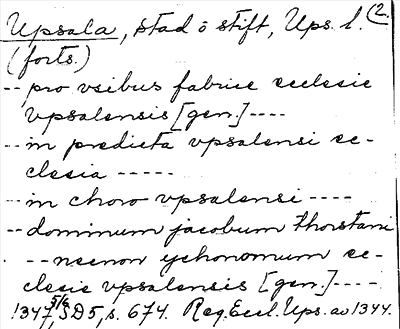 Upsala, stad o stift, Ups. l. (2.
(forts.)
-- pro vsibus fabrice ecclesie
vpsalensis [gen.] ----
-- in predicta vpsalensi ec-
clesia -----
-- in choro vpsalensi ----
-- dominum jacobum thorstani
-- necnon ychonomum ec-
clesie vpsalensis [gen.] ----
1347 5/9, SD5, s. 674. Reg. Eccl. Ups. av 1344.